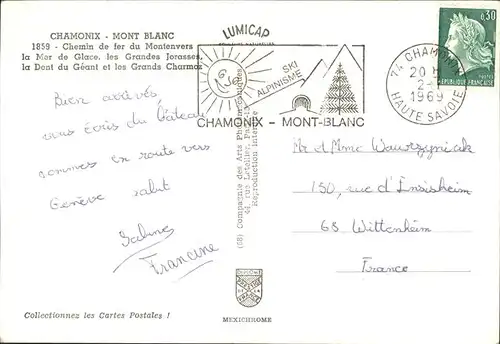 CHAMONIX - MONT BLANC
1859 - Chemin de fer du Montenvers
la Mer de Glace, les Grandes Jorasses,
la Dent du Géant et les Grands Charmoz
LUMICAP
SKI
ALPINISME
CHAMONIX - MONT-BLANC
74 CHAMONIX
20 H
2-
1969
HAUTE SAVOIE
0,30
REPUBLIQUE FRANÇAISE
POSTES
Bien arrivés
vous écris du
sommes en route vers
Genève salut
Francine
(68) Compagnie des Arts Photomécaniques
44, rue Letellier, Paris
Reproduction interdite
Mr et Mme Wawrzyniak
150, rue d'Ensisheim
68 Wittenheim
France
Collectionnez les Cartes Postales !
MEXICHROME